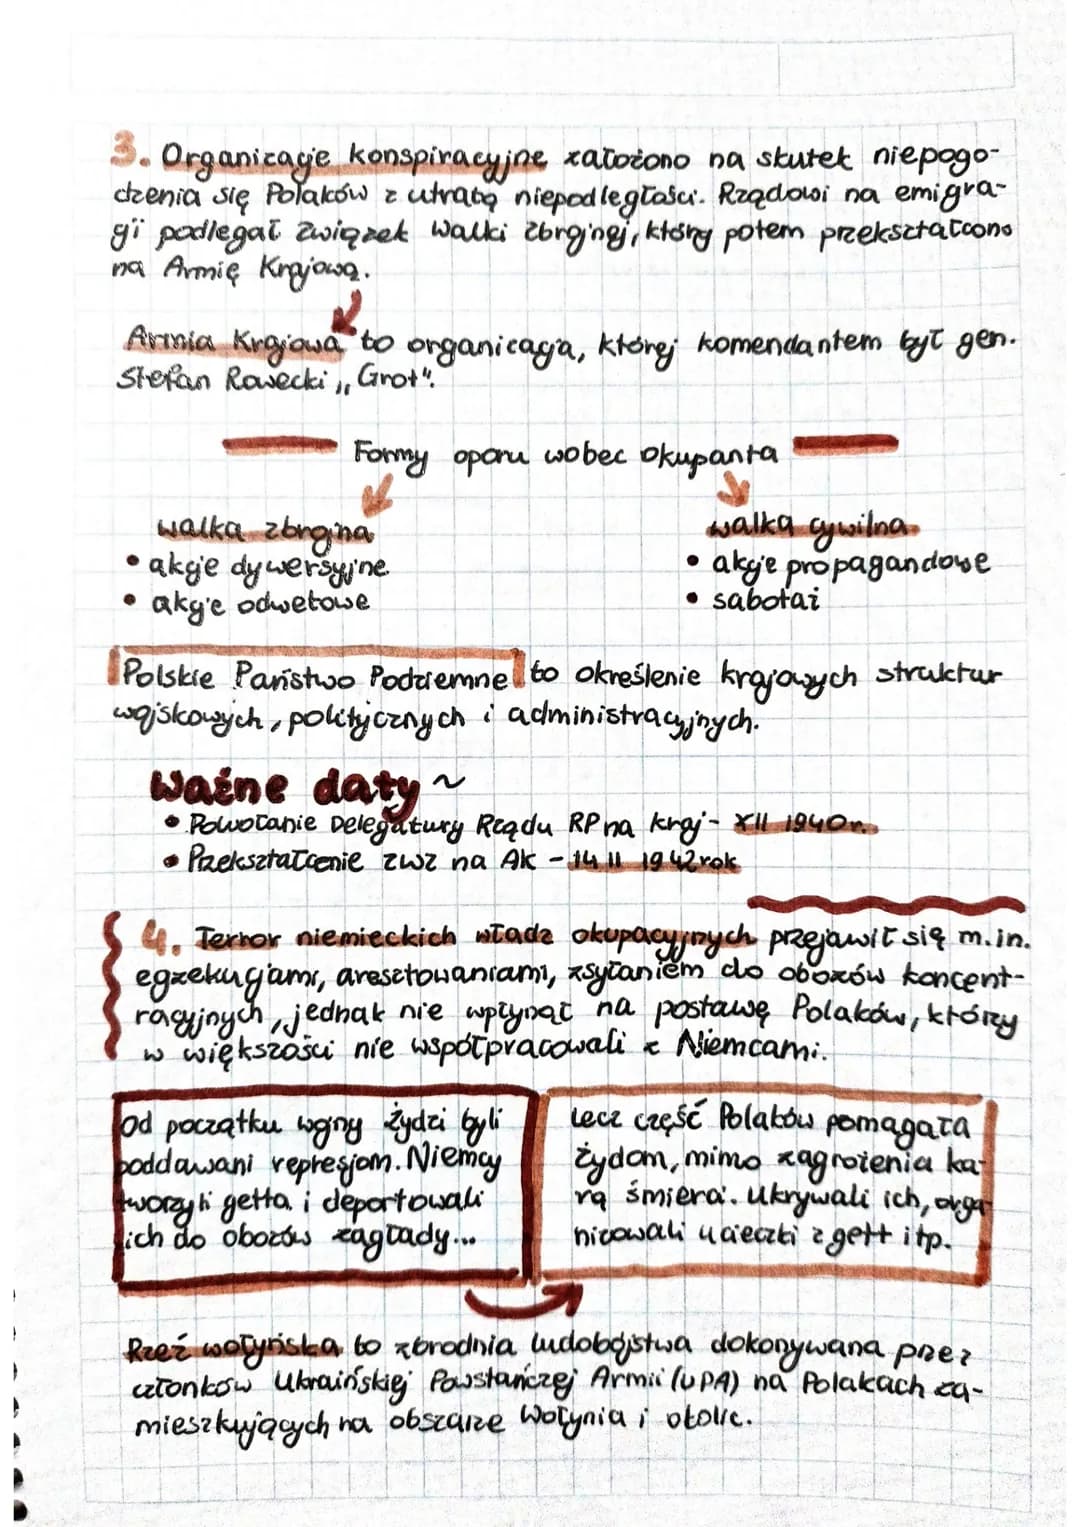 3. Organizacje konspiracyjne założono na skutek niepogo-
dzenia się Polaków z utratą niepodległości. Rządowi na emigra-
cji podlegał Związek Walki Zbrojnej, który potem przekształcono
na Armię Krajową.
Armia Krajowa to organizacja, której komendantem był gen.
Stefan Rowecki „Grot".
Formy oporu wobec okupanta
walka zbrojna
• akcje dywersyjne
• akcje odwetowe
walka cywilna
• akcje propagandowe
• sabotaż
Polskie Państwo Podziemne to określenie krajowych struktur
wojskowych, politycznych i administracyjnych.
Ważne daty ~
• Powołanie Delegatury Rządu RP na kraj - XII 1940r.
• Przekształcenie ZWZ na AK - 14 II 1942 rok
4. Terror niemieckich władz okupacyjnych przejawił się m.in.
egzekucjami, aresztowaniami, zsyłaniem do obozów koncent-
racyjnych, jednak nie wpłynął na postawę Polaków, którzy
w większości nie współpracowali z Niemcami.
Od początku wojny Żydzi byli
poddawani represjom. Niemcy
tworzyli getta i deportowali
ich do obozów zagłady...
Lecz część Polaków pomagała
Żydom, mimo zagrożenia ka-
rą śmierci. Ukrywali ich, orga-
nizowali ucieczki z gett itp.
Rzeź wołyńska to zbrodnia ludobójstwa dokonywana przez
członków Ukraińskiej Powstańczej Armii (UPA) na Polakach za-
mieszkujących na obszarze Wołynia i okolic.